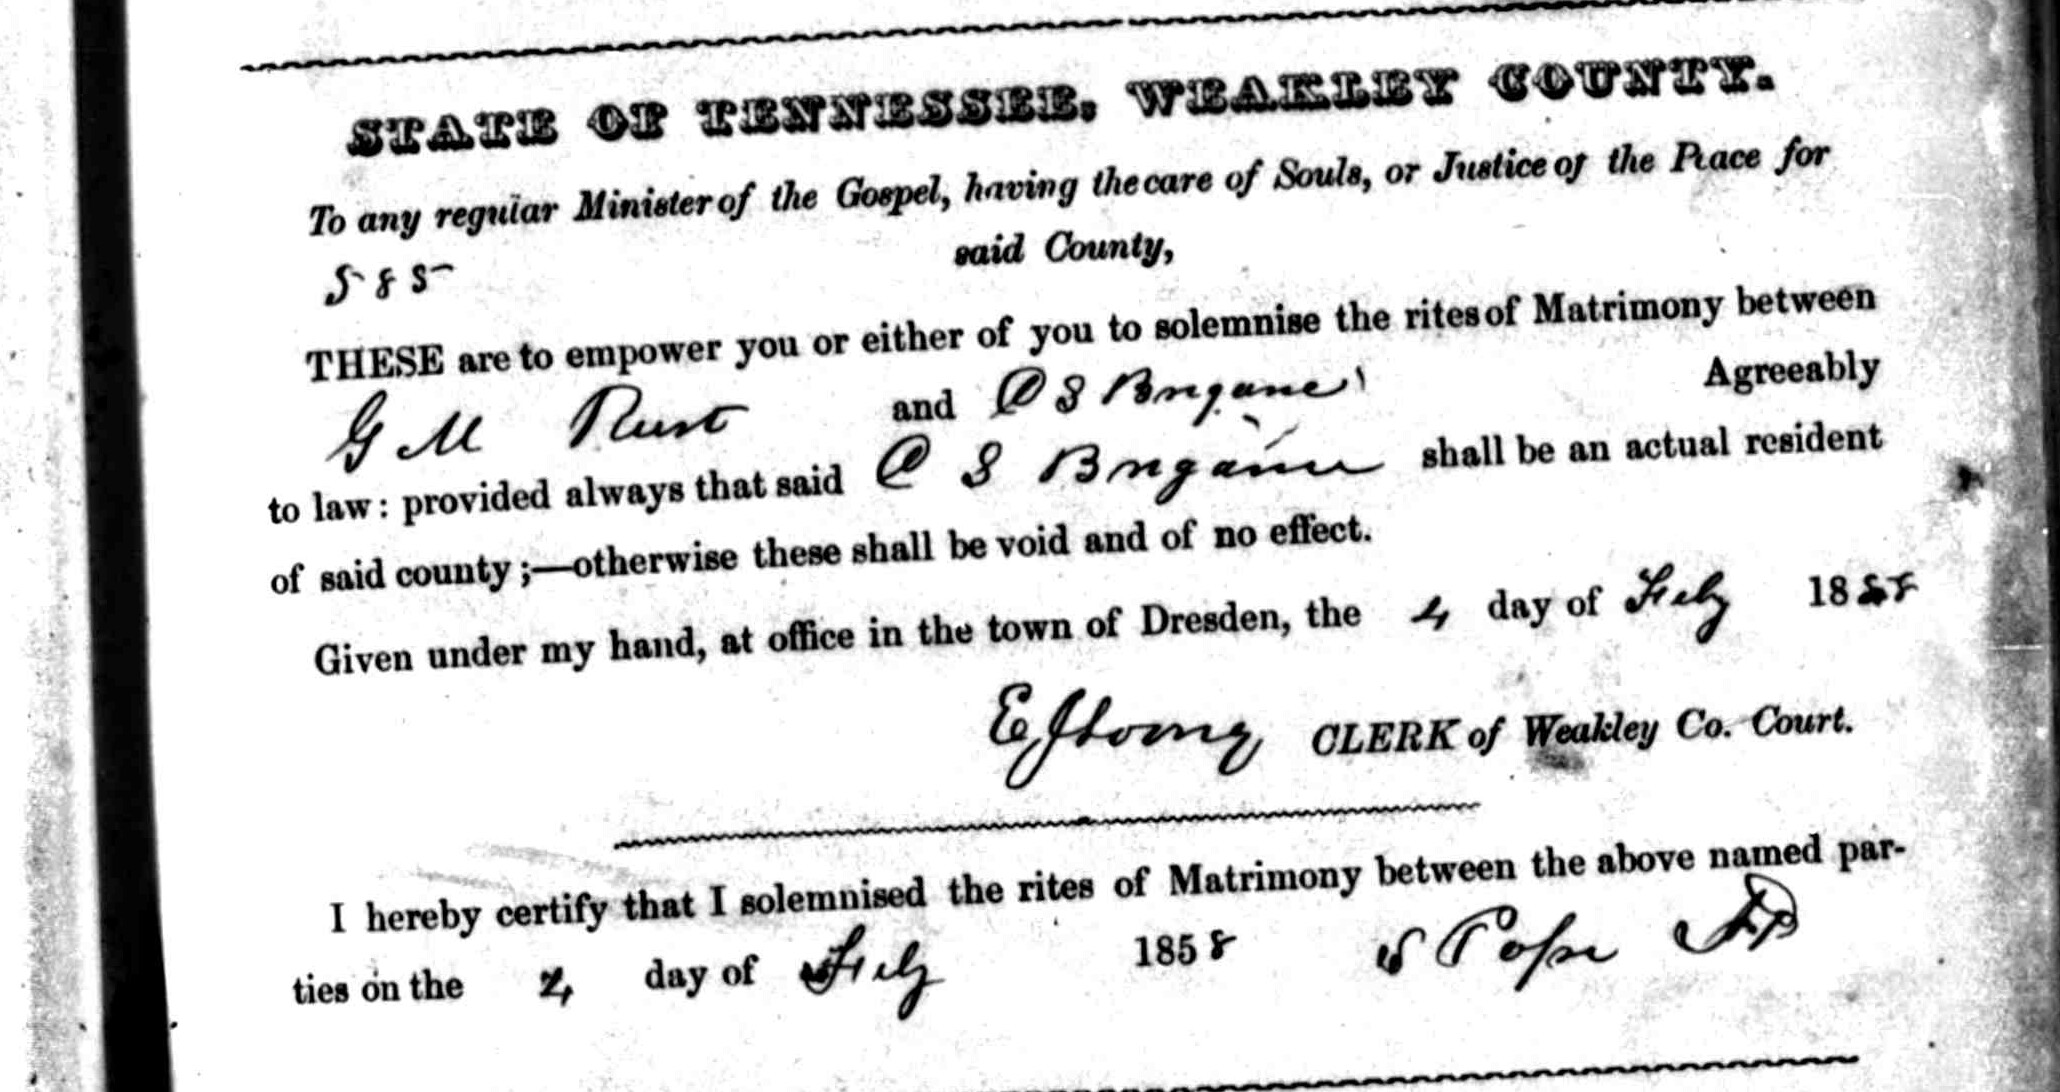 STATE OF TENNESSEE, WEAKLEY COUNTY.
To any regular Minister of the Gospel, having the care of Souls, or Justice of the Peace for
said County,
585
THESE are to empower you or either of you to solemnise the rites of Matrimony between
G M Rust and S Agreeably
to law: provided always that said S shall be an actual resident
of said county;—otherwise these shall be void and of no effect.
Given under my hand, at office in the town of Dresden, the 4 day of Feby 1858
CLERK of Weakley Co. Court.
I hereby certify that I solemnised the rites of Matrimony between the above named par-
ties on the 4 day of Feby 1858 Pope JP